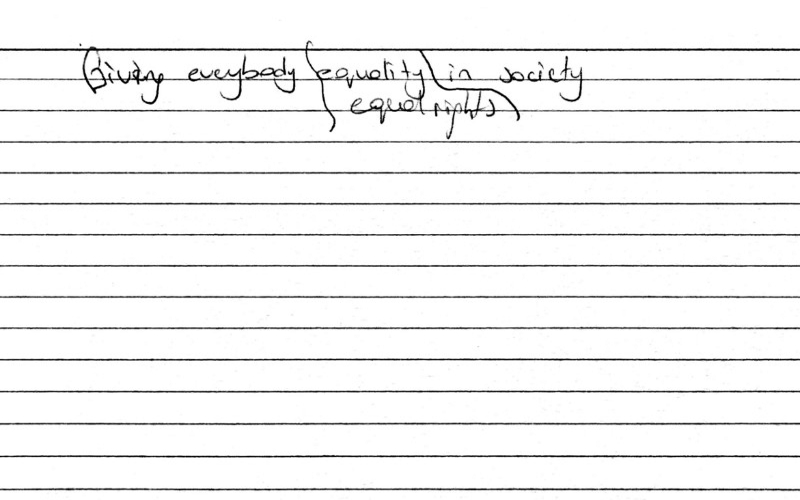 Giving everybody (equality) in society
equal rights)